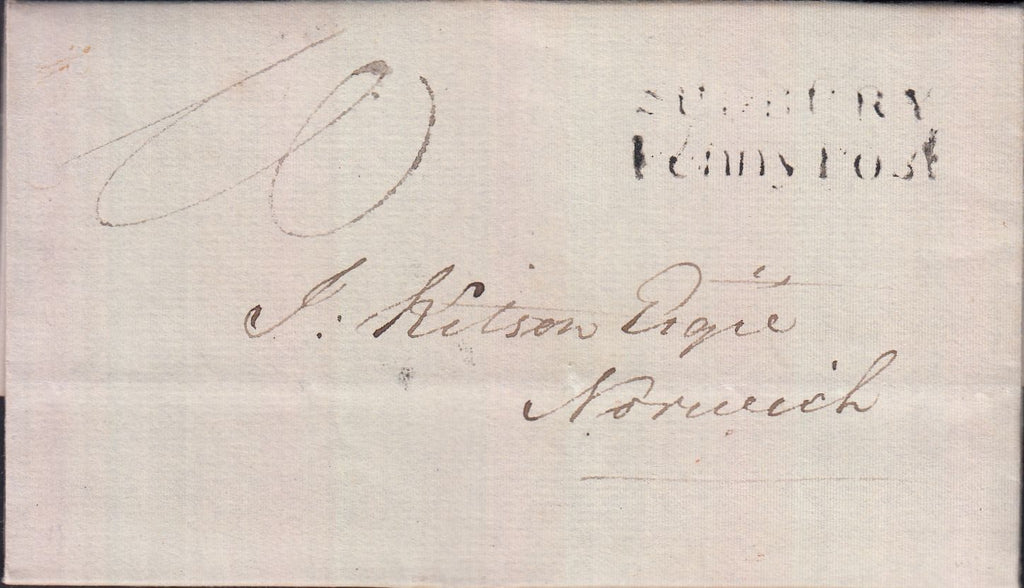 10
SUDBURY
Penny Post
J. Kitson Esqre
Norwich